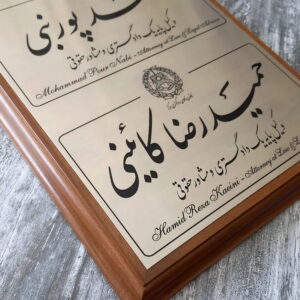 د پورنبی
وکیل پایه یک دادگستری و مشاور حقوقی
Mohammad Pour Nabi - Attorney at Law & Legal Advisor
حمیدرضا کائینی
وکیل پایه یک دادگستری و مشاور حقوقی
Hamid Reza Kaeini - Attorney at Law & L